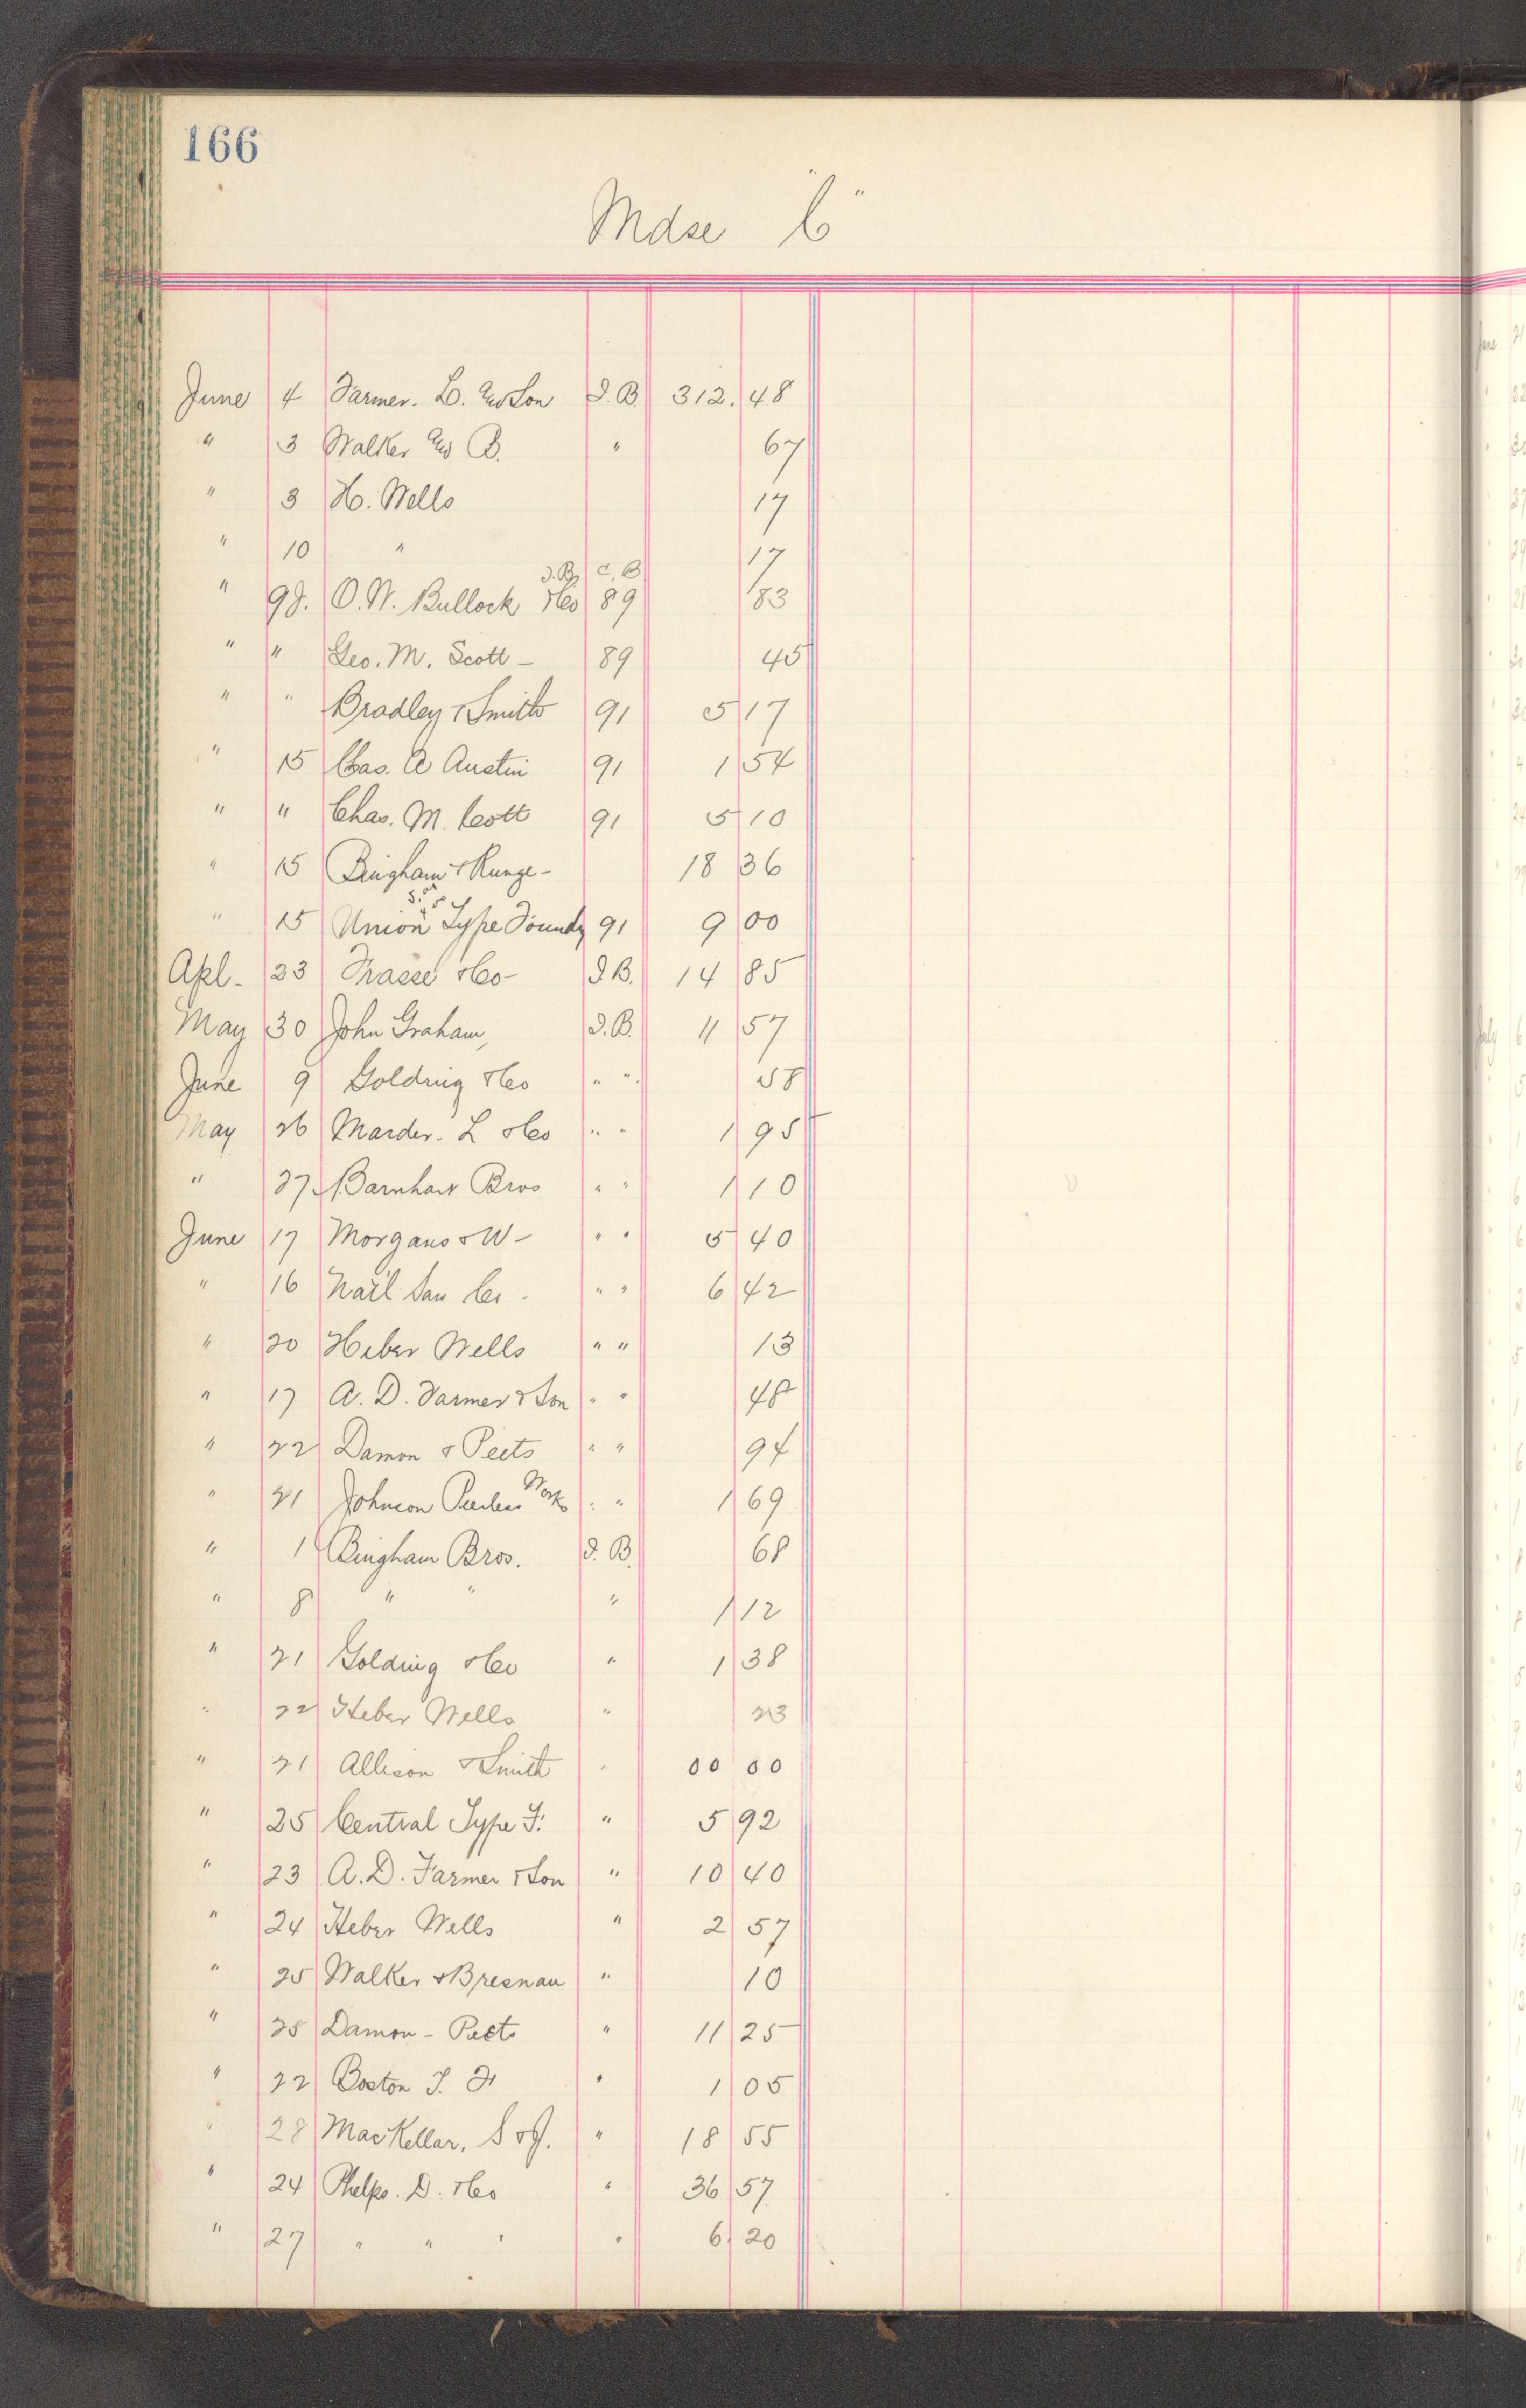 166
Mdse "C"
June 4 Farmer. L. and Son I.B. 312.48
" 3 Walker and B. " 67
" 3 H. Wells 17
" 10 " 17
I.B. C.B.
" 9 O.W. Bullock & Co 89 83
" " Geo. M. Scott - 89 45
" " Bradley & Smith 91 5 17
" 15 Chas. A Austin 91 1 54
" " Chas. M. Cott 91 5 10
" 15 Bingham & Runge - 18 36
" 15 Union Type Foundy 91 9 00
Apl - 23 Frasse & Co - I B. 14 85
May 30 John Graham, I.B. 11 57
June 9 Golding & Co " " 58
May 26 Marder. L & Co " " 1 95
" 27 Barnhart Bros " " 1 10
June 17 Morgans & W - " " 5 40
" 16 Nat'l Saw Co - " " 6 42
" 20 Heber Wells " " 13
" 17 A. D. Farmer & Son " " 48
" 22 Damon & Peets " " 94
" 21 Johnson Peerless Works " " 1 69
" 1 Bingham Bros. I. B. 68
" 8 " " " 1 12
" 21 Golding & Co " 1 38
" 22 Heber Wells " 23
" 21 Allison & Smith " 00 00
" 25 Central Type F. " 5 92
" 23 A. D. Farmer & Son " 10 40
" 24 Heber Wells " 2 57
" 25 Walker & Bresnan " 10
" 25 Damon - Peets " 11 25
" 22 Boston T. F " 1 05
" 28 MacKellar. S & J. " 18 55
" 24 Phelps. D. & Co " 36 57
" 27 " " " " 6 20